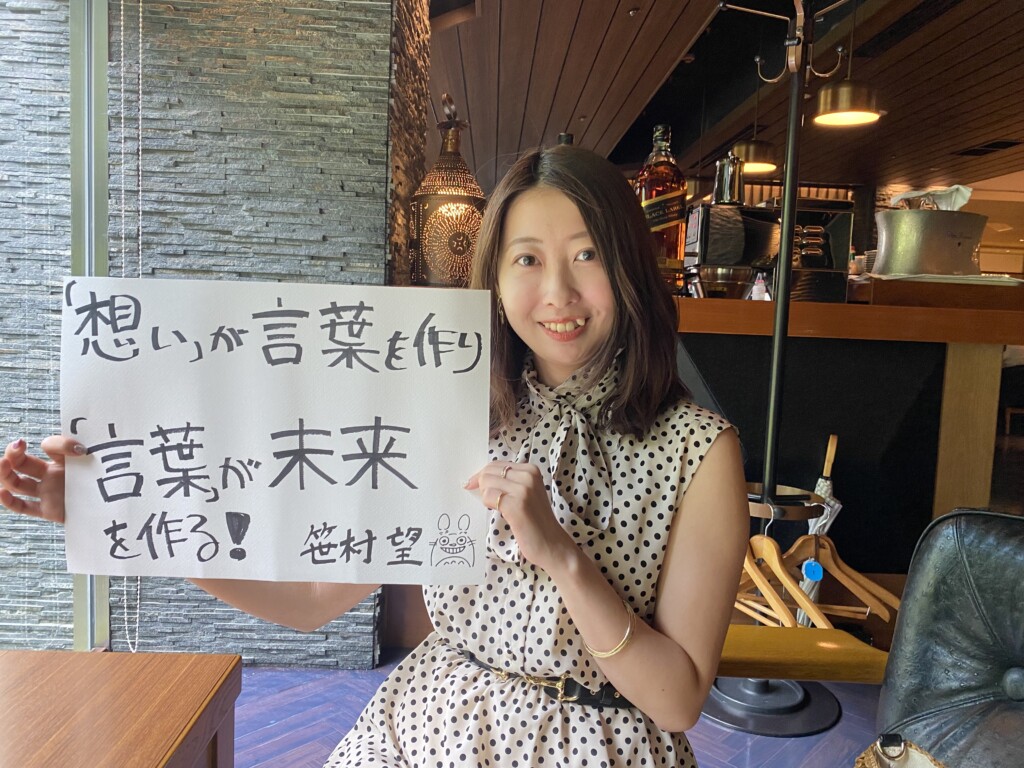 「想い」が言葉を作り
「言葉」が未来
を作る!
笹村望
BLACK LABEL